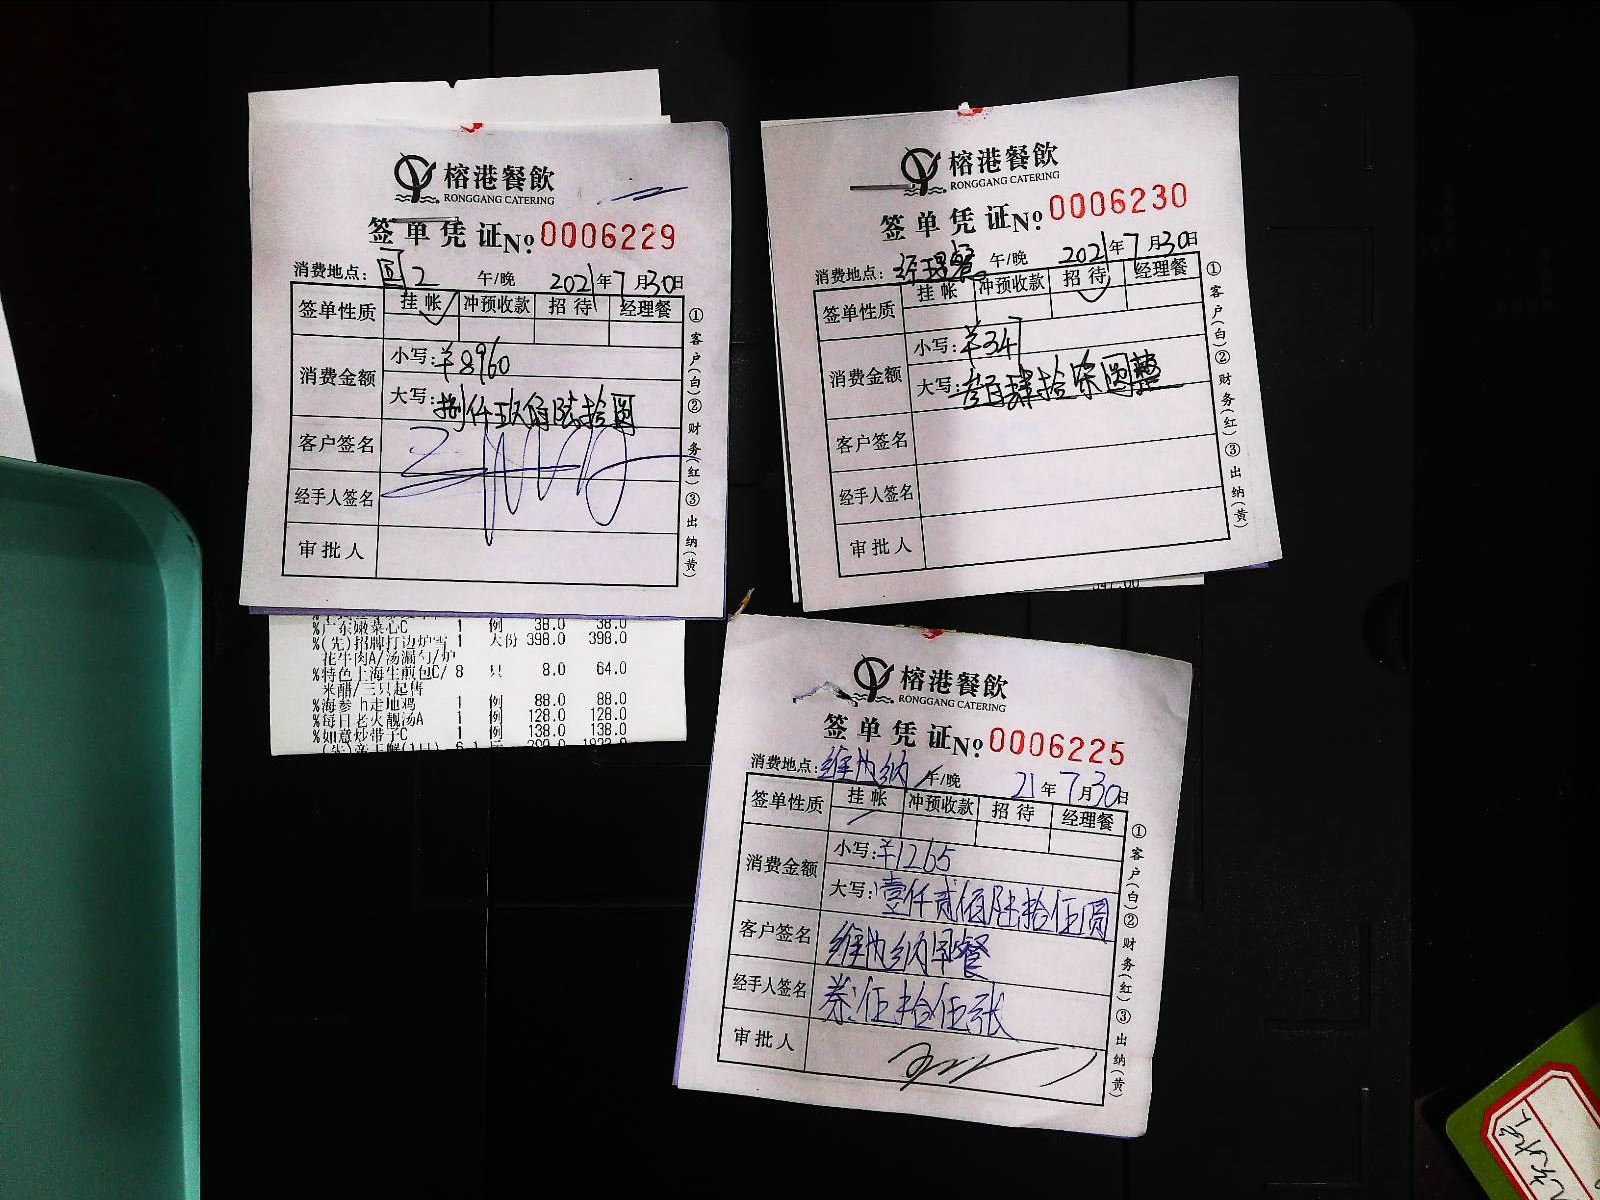 榕港餐飲
RONGGANG CATERING
签单凭证 No. 0006229
消费地点: 2 午/晚 2021年7月30日
签单性质 挂帐 冲预收款 招待 经理餐
消费金额 小写: ¥8960
大写: 捌仟玖佰陆拾圆
客户签名
经手人签名
审批人
①客户(白)②财务(红)③出纳(黄)
%广东嫩菜心C 1 例 38.0 38.0
%(先)招牌打边炉雪 1 大份 398.0 398.0
花牛肉A/汤漏勺/炉
%特色上海生煎包C/ 8 只 8.0 64.0
米醋/三只起售
%海参 走地鸡 1 例 88.0 88.0
%每日老火靓汤A 1 例 128.0 128.0
%如意炒带子C 1 例 138.0 138.0
榕港餐飲
RONGGANG CATERING
签单凭证 No. 0006230
消费地点: 经理餐 午/晚 2021年7月30日
签单性质 挂帐 冲预收款 招待 经理餐
消费金额 小写: ¥347
大写: 叁佰肆拾柒圆整
客户签名
经手人签名
审批人
①客户(白)②财务(红)③出纳(黄)
榕港餐飲
RONGGANG CATERING
签单凭证 No. 0006225
消费地点: 维也纳 午/晚 21年7月30日
签单性质 挂帐 冲预收款 招待 经理餐
消费金额 小写: ¥1265
大写: 壹仟贰佰陆拾伍圆
客户签名 维也纳早餐
经手人签名 券:伍拾伍张
审批人
①客户(白)②财务(红)③出纳(黄)